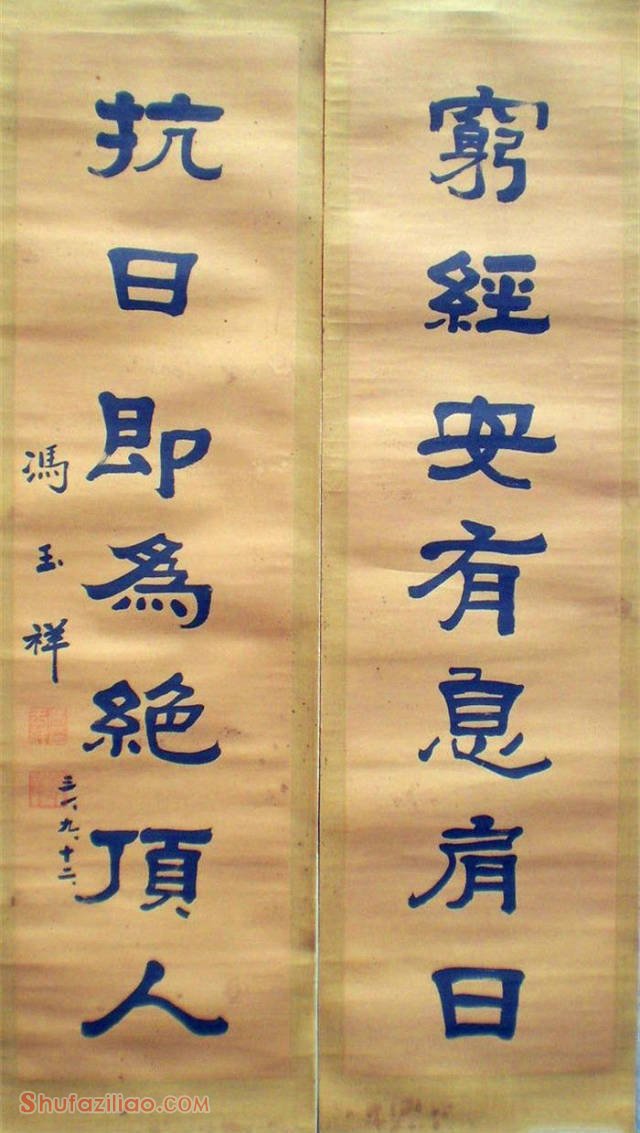 窮經安有息肩日
抗日即為絕頂人
馮玉祥
三一、九、十二、
Shufaziliao.COM